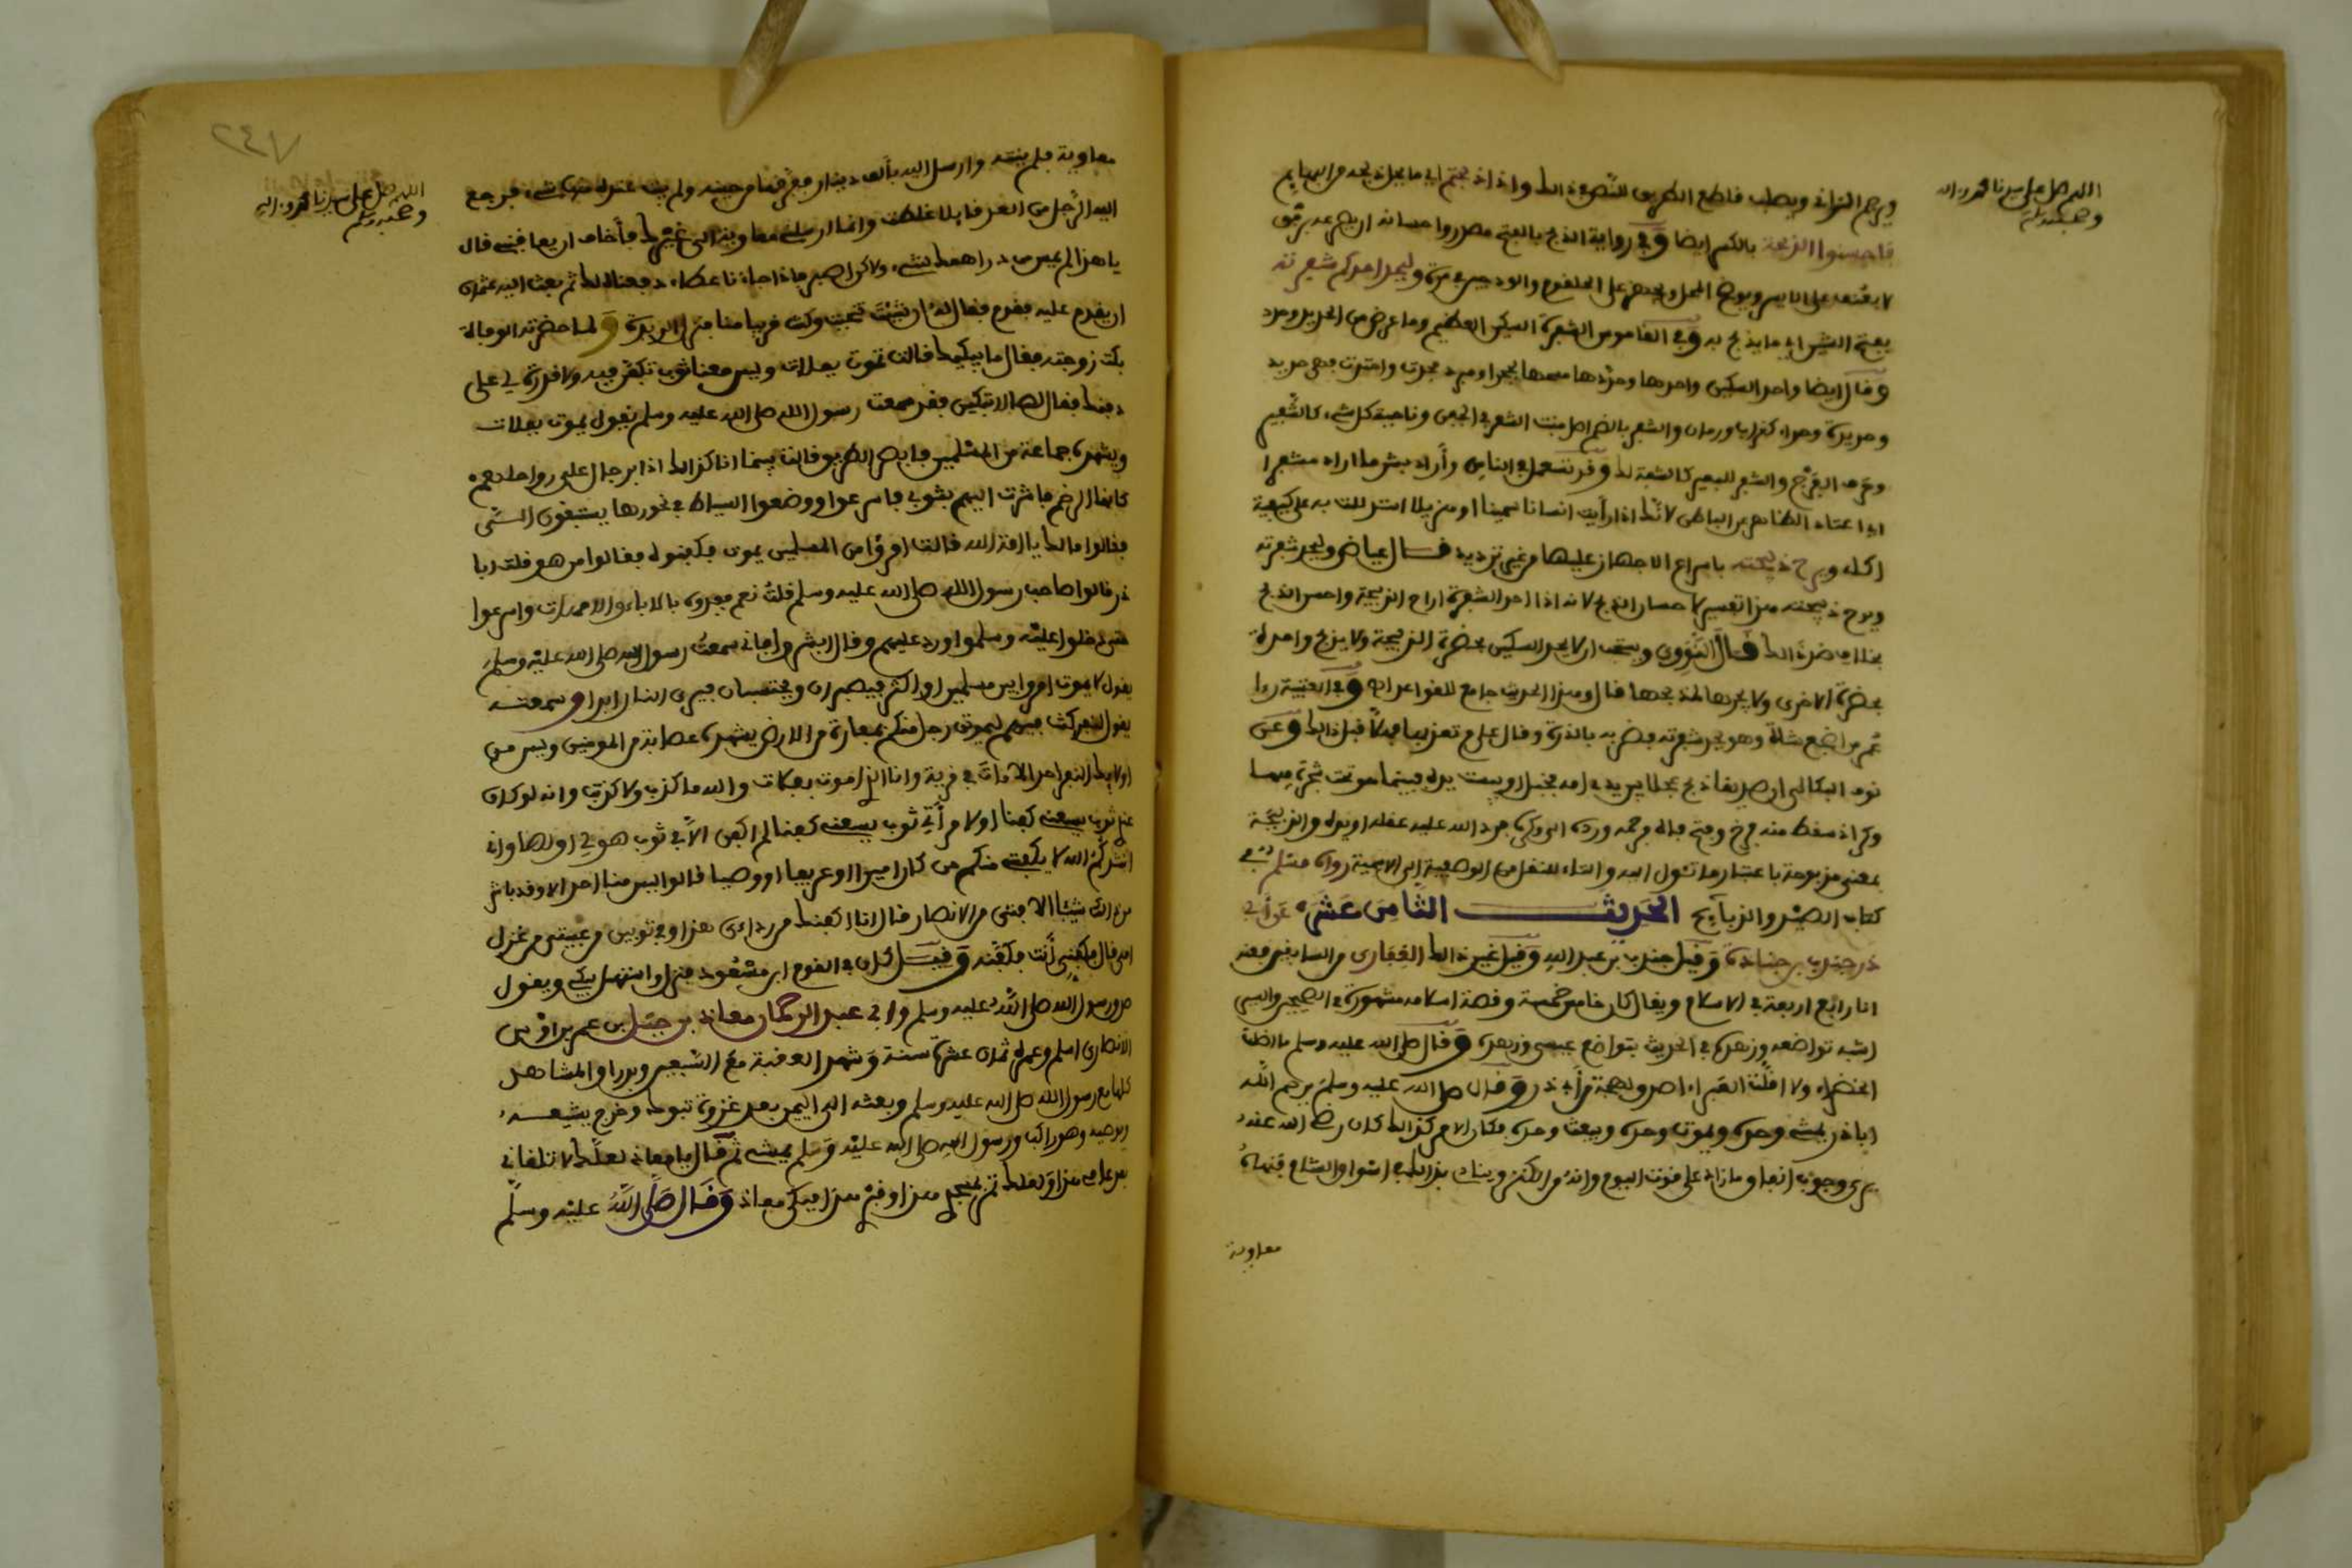 اللهم صل على سيدنا محمد وءاله
وصحبه وسلم
ويرجم الزاني ويصلب قاطع الطريق لنص في ذلك وإذا ذبحتم أي ما يحل ذبحه من البهايم
فاحسنوا الذبحة بالكسر أيضا وفي رواية الذبح بالفتح مصدر واحسانه
وليحد احدكم شفرته
بفتح الشين أي ما يذبح به وفي القاموس الشفرة السكين العظيم وما عرض من الحديد وحدد
وقال أيضا وأحد السكين واحدها وحددها مسحها بحجر او مبرد فحدت واحتدت فهي حديد
وحديدة وحداد كغراب ورمان والشفر بالضم اصل منبت الشعر في الجفن وناحية كل شيء كالشفير
وحرف الفرج
الظاهر الباطن لأنك إذا رأيت انسانا سمينا او هزيلا استدللت به على كيفية
اكله ويرح ذبيحته باسراع الاجهاز عليها من غير ترديد قال عياض وليحد شفرته
ويرح ذبيحته هذا تفسير لاحسان الذبح لأنه إذا احد الشفرة اراح الذبيحة واحسن الذبح
بخلاف ضد ذلك قال النووي ويستحب ان لا يحد السكين بحضرة الذبيحة ولا يذبح واحدة
بحضرة الاخرى ولا يجرها لمذبحها قال وهذا الحديث جامع للقواعد وفي العتبية رءا
عمر من اضجع شاة وهو يحد شفرته فضربه بالدرة وقال علام تعذبها هلا قبل ذلك وعن
نوف البكالي ان صديقا ذبح عجلا بين يدي امه فخبل او يبست يده فبينما هو تحت شجرة فيها
وكر إذ سقط منه فرخ وفتح فاه فرحمه ورده الى وكره فرد الله عليه عقله او يده والذبيحة
بمعنى مذبوحة باعتبار ما تئول اليه والتاء للنقل من الوصفية إلى الاسمية رواه مسلم في
كتاب الصيد والذبايح الحديث الثامن عشر عن أبي
ذر جندب بن جنادة وقيل جندب بن عبد الله وقيل غير ذلك الغفاري من السابقين
انا رابع اربعة في الاسلام ويقال كان خامس خمسة وقصة اسلامه مشهورة في الصحيح والسير
اشبه تواضعه وزهده في الحديث بتواضع عيسى وزهده وقال صلى الله عليه وسلم ما اظلت
الخضراء ولا اقلت الغبراء اصدق لهجة من أبي ذر وقال صلى الله عليه وسلم يرحم الله
اباذر يمشي وحده ويموت وحده ويبعث وحده فكان الامر كذلك كان رضي الله عنه
يرى وجوب انفاق ما زاد على قوت اليوم وانه من الكنز وينادي بذلك في اسواق الشام فنهاه
معاوية
٢٤٧
اللهم صل على سيدنا محمد وءاله
وصحبه وسلم
معاوية فلم ينته وارسل اليه بألف دينار ففرقها من حينه ولم يبت عنده منها شيء فرجع
اليه الرجل من الغد قايلا غلطت وانما ارسلني معاوية الى غيرك فأخاف ان يعاقبني قال
يا هذا لم يمس من دراهمك شيء ولاكن اصبر فإذا جاءنا عطاء دفعناه لك ثم بعث اليه عثمان
ان يقدم عليه فقدم فقال له ان شئت تنحيت وكنت قريبا منا فنزل الربذة ولما حضرته الوفاة
بكت زوجته فقال ما يبكيك قالت تموت بفلاة وليس معنا ثوب نكفن فيه ولا قدرة لي على
دفنك فقال لها لا تبكين فقد سمعت رسول الله صلى الله عليه وسلم يقول يموت بفلات
ويشهده جماعة من المسلمين فابصري الطريق قالت بينما انا كذلك اذا برجال على رواحلهم
كانها الرخم فاشرت اليهم بثوبي فاسرعوا ووضعوا السياط في نحورها يستبقون الي
فقالوا مالك يا امة الله قالت امرؤ من المسلمين يموت فكفنوه فقالوا من هو قلت ابا
ذر قالوا صاحب رسول الله صلى الله عليه وسلم قلت نعم فجدوه بالاباء والامهات واسرعوا
حتى دخلوا عليه وسلموا ورد عليهم وقال ابشروا فاني سمعت رسول الله صلى الله عليه وسلم
يقول لا يموت امرؤ بين مسلمين او اكثر فيصبران ويحتسبان فيرى النار ابدا وسمعته
يقول لنفر كنت فيهم ليموتن رجل منكم بفلاة من الارض يشهده عصابة من المومنين وليس من
اولايك النفر احد الا مات في قرية وانا الذي اموت بفلاة والله ما كذب ولا كذبت وانه لو كان
عندي ثوب يسعني كفنا او لامرأتي ثوب يسعني كفنا لم اكفن الا في ثوب هو لي او لها واني
انشدكم الله لا يكفني منكم من كان اميرا او عريفا او وصيا قالوا ليس منا احد الا وقد باشر
من ذلك شيئا الا فتى من الانصار قال انا اكفنك من ردائي هذا وفي ثوبين في عيبتي من غزل
امي قال فكفني أنت فكفنه وقيل كان في القوم ابن مسعود فنزل واستهل يبكي ويقول
صدق رسول الله صلى الله عليه وسلم وابي عبد الرحمان معاذ بن جبل بن عمرو بن اوس
الانصاري اسلم وعمره ثمان عشرة سنة وشهد العقبة مع السبعين وبدرا والمشاهد
كلها مع رسول الله صلى الله عليه وسلم وبعثه الى اليمن بعد غزوة تبوك وخرج يشيعه
ويوصيه وهو راكب ورسول الله صلى الله عليه وسلم يمشي ثم قال يا معاذ لعلك لا تلقاني
بعد عامي هذا ولعلك تمر بمسجدي هذا وقبري هذا فبكى معاذ وقال صلى الله عليه وسلم